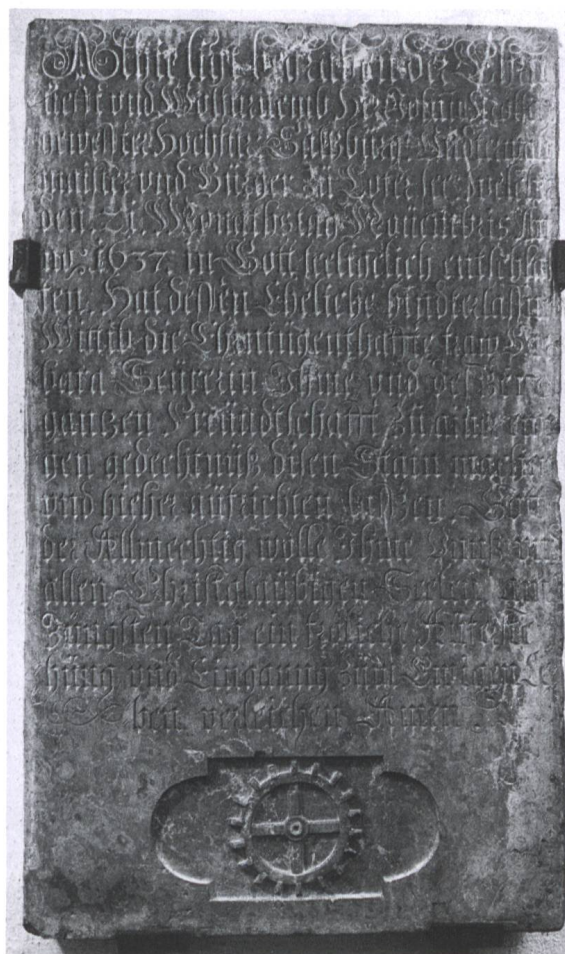 Alhie ligt begraben der Ehrn
uest und Wolfürnemb Herr
gewester Hochfür: Salzburg:
maister und Burger zu
den 21. Monathstag Nouembris An
no: 1637. in Gott seeligclich entschla
fen. Hat dessen Eheliche hinderlassne
Wittib die Ehrntugenthaffte fraw Bar
bara Ihme und dessen
ganzen Freundtschafft zu
gen gedechtnuß disen Stain machen
und hieher aufrichten lassen. Gott
der Allmechtig wolle Ihme
allen Christglaubigen Seelen am
Jüngsten Tag ein froliche Aufferste
hung und Eingang zum Ewigen Le
ben verleichen Amen